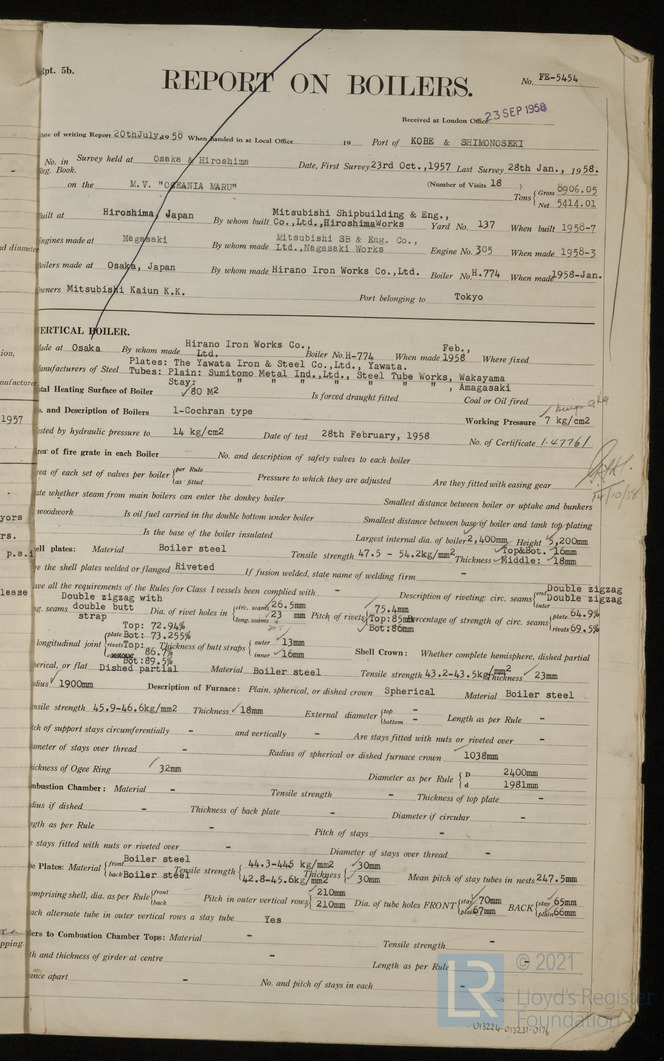 Rpt. 5b.
REPORT ON BOILERS.
No. FE-5454
Received at London Office 23 SEP 1958
ate of writing Report 20th July, 1958 When handed in at Local Office 19 Port of KOBE & SHIMONOSEKI
No. in Survey held at Osaka & Hiroshima Date, First Survey 23rd Oct., 1957 Last Survey 28th Jan., 1958.
eg. Book.
on the M.V. "OCEANIA MARU" (Number of Visits 18 ) Tons { Gross 8906.05
Net 5414.01
uilt at Hiroshima, Japan By whom built Mitsubishi Shipbuilding & Eng., Co., Ltd., Hiroshima Works Yard No. 137 When built 1958-7
ngines made at Nagasaki By whom made Mitsubishi SB & Eng. Co., Ltd., Nagasaki Works Engine No. 305 When made 1958-3
oilers made at Osaka, Japan By whom made Hirano Iron Works Co., Ltd. Boiler No. H.774 When made 1958-Jan.
wners Mitsubishi Kaiun K.K. Port belonging to Tokyo
ERTICAL BOILER.
ade at Osaka By whom made Hirano Iron Works Co., Ltd. Boiler No. H-774 When made Feb., 1958 Where fixed
anufacturers of Steel Plates: The Yawata Iron & Steel Co., Ltd., Yawata.
Tubes: Plain: Sumitomo Metal Ind., Ltd., Steel Tube Works, Wakayama
Stay: " " " " " , Amagasaki
tal Heating Surface of Boiler 80 M2 Is forced draught fitted Coal or Oil fired
o. and Description of Boilers 1-Cochran type Working Pressure 7 kg/cm2
ested by hydraulic pressure to 14 kg/cm2 Date of test 28th February, 1958 No. of Certificate 1-47761
rea of fire grate in each Boiler No. and description of safety valves to each boiler
rea of each set of valves per boiler { per Rule
as fitted Pressure to which they are adjusted Are they fitted with easing gear
ate whether steam from main boilers can enter the donkey boiler Smallest distance between boiler or uptake and bunkers
woodwork Is oil fuel carried in the double bottom under boiler Smallest distance between base of boiler and tank top plating
Is the base of the boiler insulated Largest internal dia. of boiler 2,400mm Height 5,200mm
ell plates: Material Boiler steel Tensile strength 47.5 - 54.2kg/mm2 Thickness Top&Bot. 16mm
Middle: 18mm
re the shell plates welded or flanged Riveted If fusion welded, state name of welding firm -
ave all the requirements of the Rules for Class I vessels been complied with - Description of riveting: circ. seams { end Double zigzag
inter Double zigzag
g. seams Double zigzag with double butt strap Dia. of rivet holes in { circ. seams 26.5mm
long. seams 23 mm Pitch of rivets { 75.4mm
Top: 85mm
Bot: 86mm Percentage of strength of circ. seams { plate 64.9%
rivets 69.5%
longitudinal joint { plate Top: 72.94%
Bot: 73.255%
rivets Top: 86.7%
Bot: 89.5% Thickness of butt straps { outer 13mm
inner 16mm Shell Crown: Whether complete hemisphere, dished partial
herical, or flat Dished partial Material Boiler steel Tensile strength 43.2-43.5kg/mm2 Thickness 23mm
dius 1900mm Description of Furnace: Plain, spherical, or dished crown Spherical Material Boiler steel
nsile strength 45.9-46.6kg/mm2 Thickness 18mm External diameter { top -
bottom - Length as per Rule -
tch of support stays circumferentially - and vertically - Are stays fitted with nuts or riveted over -
ameter of stays over thread - Radius of spherical or dished furnace crown 1038mm
ickness of Ogee Ring 32mm Diameter as per Rule { D 2400mm
d 1981mm
mbustion Chamber: Material - Tensile strength - Thickness of top plate -
dius if dished - Thickness of back plate - Diameter if circular -
ngth as per Rule - Pitch of stays -
e stays fitted with nuts or riveted over - Diameter of stays over thread -
be Plates: Material { front Boiler steel
back Boiler steel Tensile strength { 44.3-445 kg/mm2
42.8-45.6kg/mm2 Thickness { 30mm
30mm Mean pitch of stay tubes in nests 247.5mm
omprising shell, dia. as per Rule { front
back Pitch in outer vertical rows { 210mm
210mm Dia. of tube holes FRONT { stay 70mm
plain 67mm BACK { stay 65mm
plain 66mm
ach alternate tube in outer vertical rows a stay tube Yes
ders to Combustion Chamber Tops: Material - Tensile strength -
th and thickness of girder at centre - Length as per Rule -
tance apart - No. and pitch of stays in each -
LR © 2021
Lloyd's Register
Foundation
013224-013231-0176